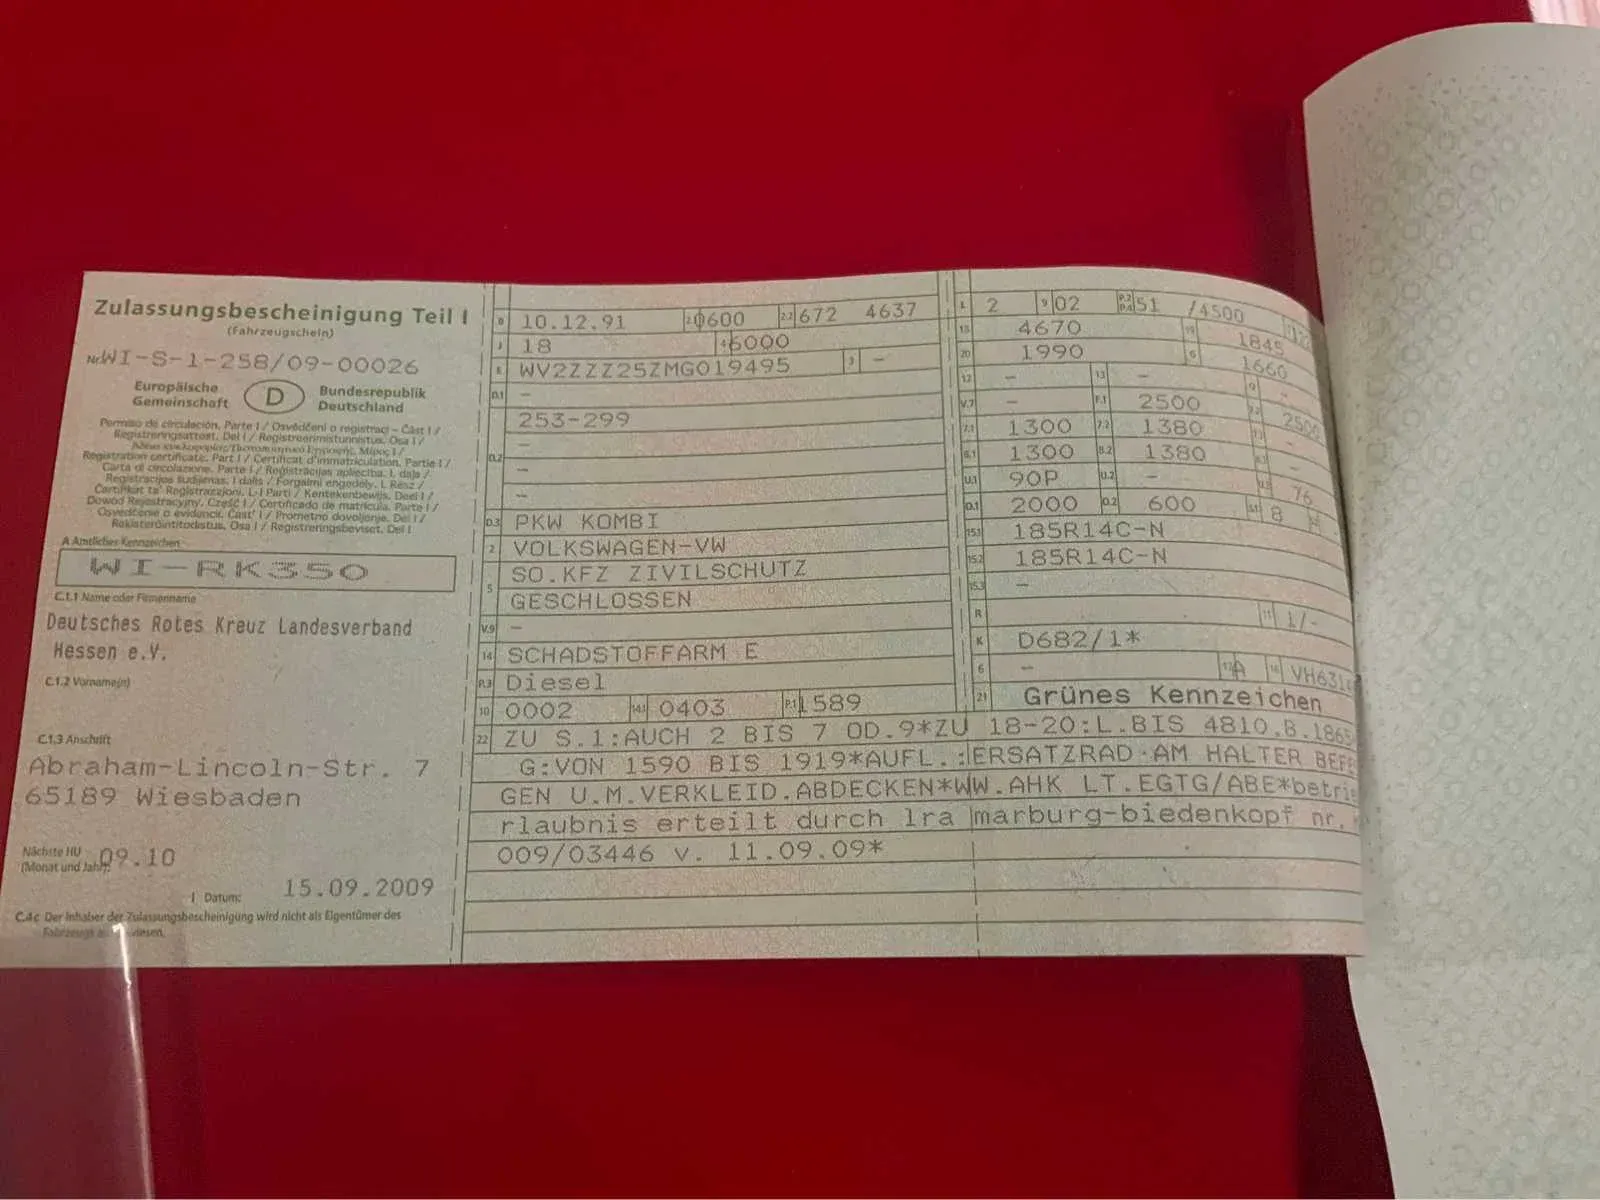 Zulassungsbescheinigung Teil I
(Fahrzeugschein)
Nr. WI-S-1-258/09-00026
Europäische Gemeinschaft D Bundesrepublik Deutschland
Permiso de circulación. Parte I / Osvědčení o registraci – Část I /
Registreringsattest. Del I / Registreerimistunnistus. Osa I /
Registration certificate. Part I / Certificat d'immatriculation. Partie I /
Carta di circolazione. Parte I / Reģistrācijas apliecība. I. daļa /
Registracijos liudijimas. I dalis / Forgalmi engedély. I. Rész /
Ċertifikat ta' Reġistrazzjoni. L-I Parti / Kentekenbewijs. Deel I /
Dowód Rejestracyjny. Część I / Certificado de matrícula. Parte I /
Osvedčenie o evidencii. Časť I / Prometno dovoljenje. Del I /
Rekisteröintitodistus. Osa I / Registreringsbeviset. Del I
A Amtliches Kennzeichen
WI-RK350
C.1.1 Name oder Firmenname
Deutsches Rotes Kreuz Landesverband
Hessen e.V.
C.1.2 Vorname(n)
C.1.3 Anschrift
Abraham-Lincoln-Str. 7
65189 Wiesbaden
Nächste HU
(Monat und Jahr) 09.10
I Datum: 15.09.2009
C.4c Der Inhaber der Zulassungsbescheinigung wird nicht als Eigentümer des
B 10.12.91 2.1 0600 2.2 672 4637
J 18 4 6000
E WV2ZZZ25ZMG019495 3 -
D.1 -
253-299
D.2 -
-
-
D.3 PKW KOMBI
2 VOLKSWAGEN-VW
5 SO.KFZ ZIVILSCHUTZ
GESCHLOSSEN
V.9 -
14 SCHADSTOFFARM E
P.3 Diesel
10 0002 14.1 0403 P.1 1589
L 2 9 02 P.2 P.4 51 /4500
18 4670 19 1845
20 1990 G 1660
12 - 13 -
V.7 - F.1 2500 2500
7.1 1300 7.2 1380 -
8.1 1300 8.2 1380 -
U.1 90P U.2 - 76
O.1 2000 O.2 600 S.1 8
15.1 185R14C-N
15.2 185R14C-N
15.3 -
R 11 1/-
K D682/1*
6 - 17 A 16
21 Grünes Kennzeichen
22 ZU S.1:AUCH 2 BIS 7 OD.9*ZU 18-20:L.BIS 4810.B.1865
G:VON 1590 BIS 1919*AUFL.:ERSATZRAD AM HALTER
GEN U.M.VERKLEID.ABDECKEN*WW.AHK LT.EGTG/ABE*betri
rlaubnis erteilt durch lra marburg-biedenkopf nr.
009/03446 v. 11.09.09*